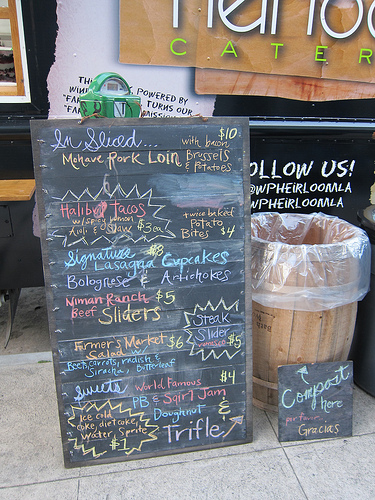 CATER
POWERED BY
TURNS OUR
OLLOW US!
@WPHEIRLOOMLA
WPHEIRLOOMLA
In Sliced... $10
with bacon
Mohave Pork Loin Brussels
& Potatoes
Halibut Tacos
$3ea
twice baked
Potato
Bites $4
Signature $3
Lasagna Cupcakes
Bolognese & Artichokes
Niman Ranch $5
Beef Sliders
Steak
Slider
$5
Farmer's Market $6
Salad w/
Beets, carrots, radish &
Siracha, Butterleaf
Sweets
World Famous $4
PB & Sqirl Jam
Doughnut &
Trifle
Ice cold
coke, diet coke,
water Sprite
$1
Compost
here
por favor
Gracias